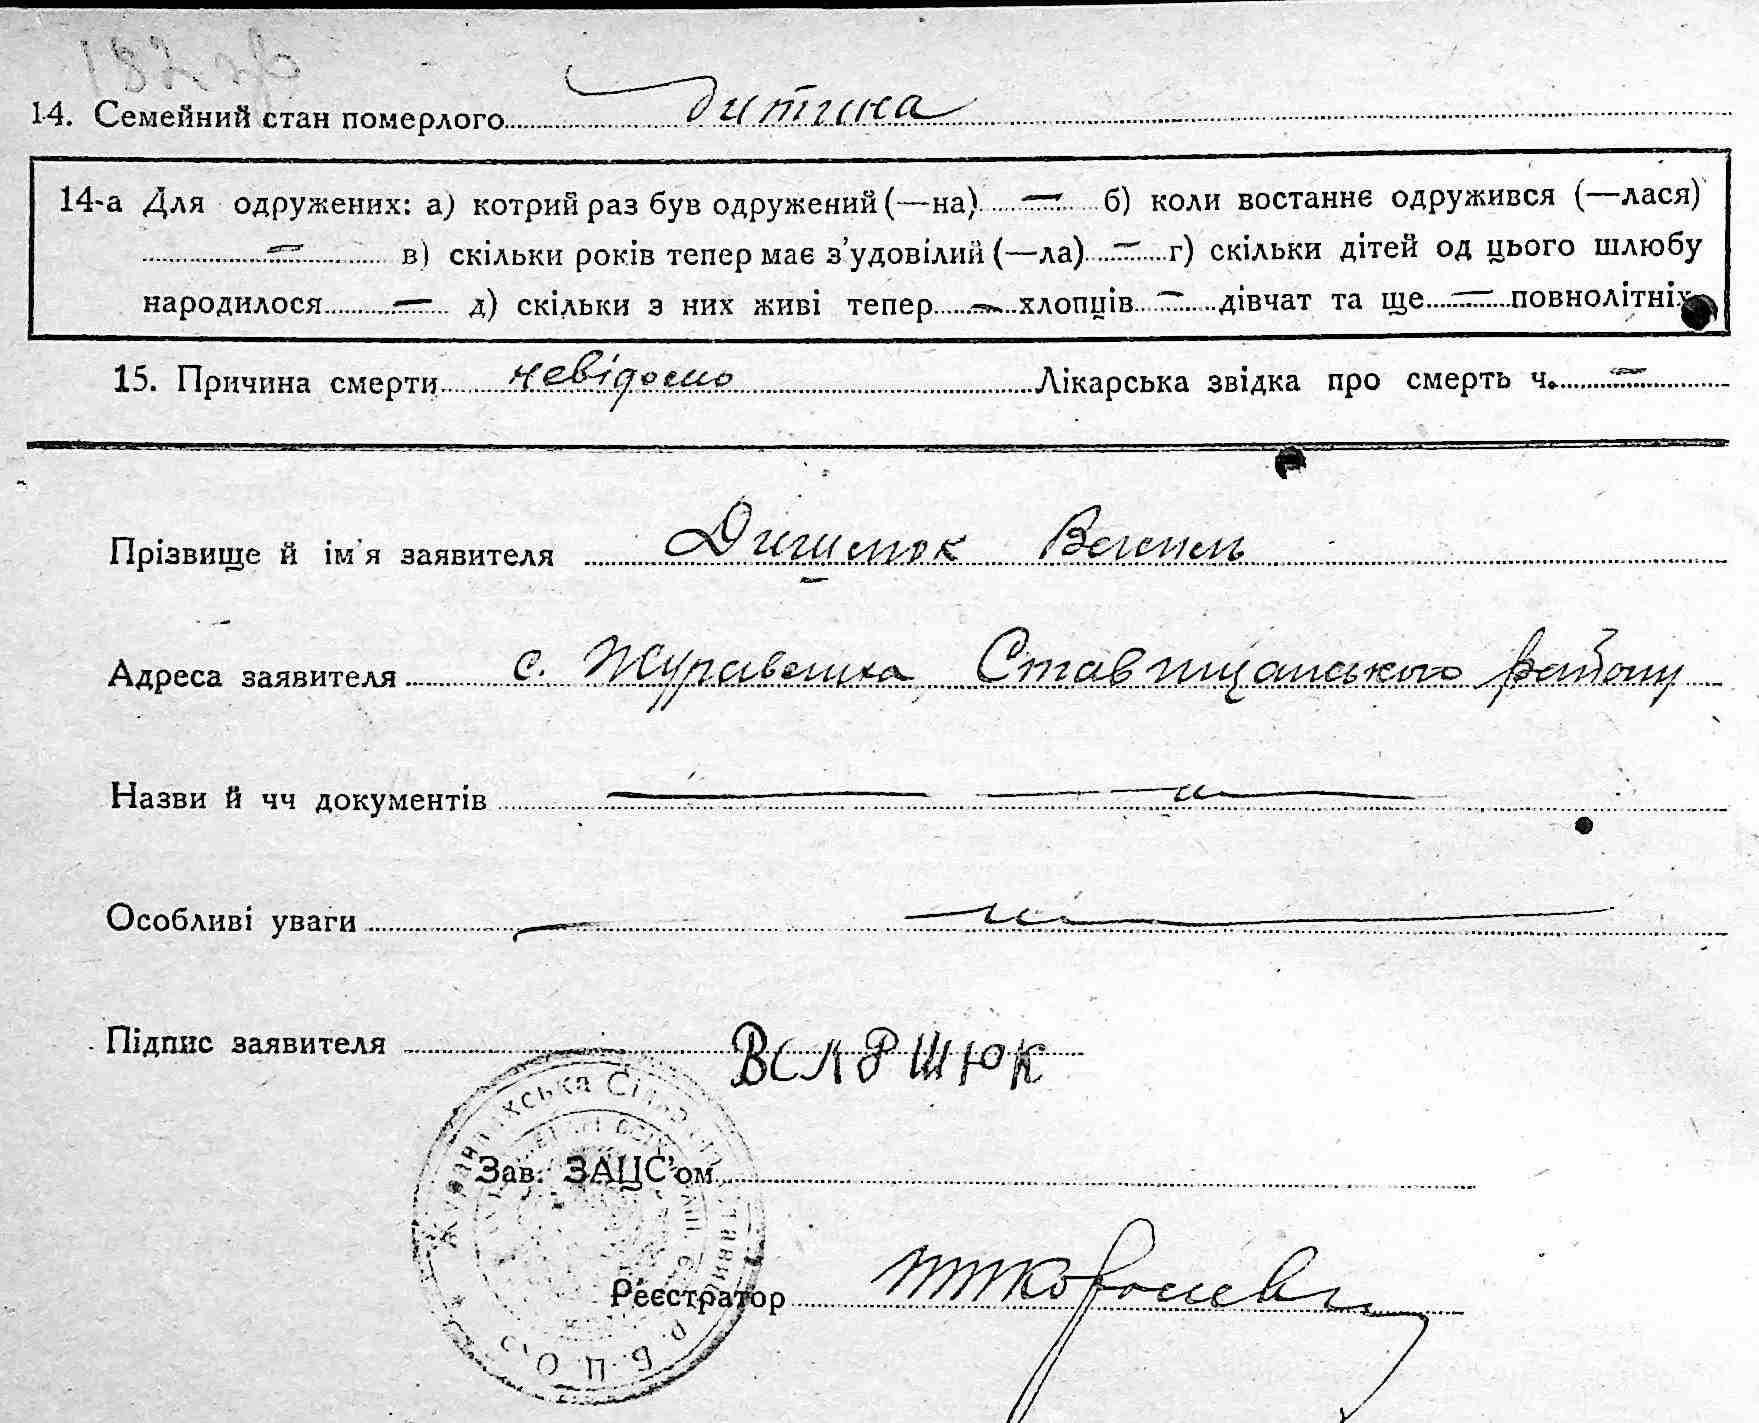 14. Семейний стан померлого дитина
14-а Для одружених: а) котрий раз був одружений (—на) — б) коли востаннє одружився (—лася)
— в) скільки років тепер має з’удовілий (—ла) — г) скільки дітей од цього шлюбу
народилося — д) скільки з них живі тепер — хлопців — дівчат та ще — повнолітніх
15. Причина смерти невідомо Лікарська звідка про смерть ч. —
Прізвище й ім’я заявителя
Адреса заявителя с. Журавлиха, Ставищанського району
Назви й чч документів —
Особливі уваги —
Підпис заявителя
Зав. ЗАЦС’ом
Реєстратор